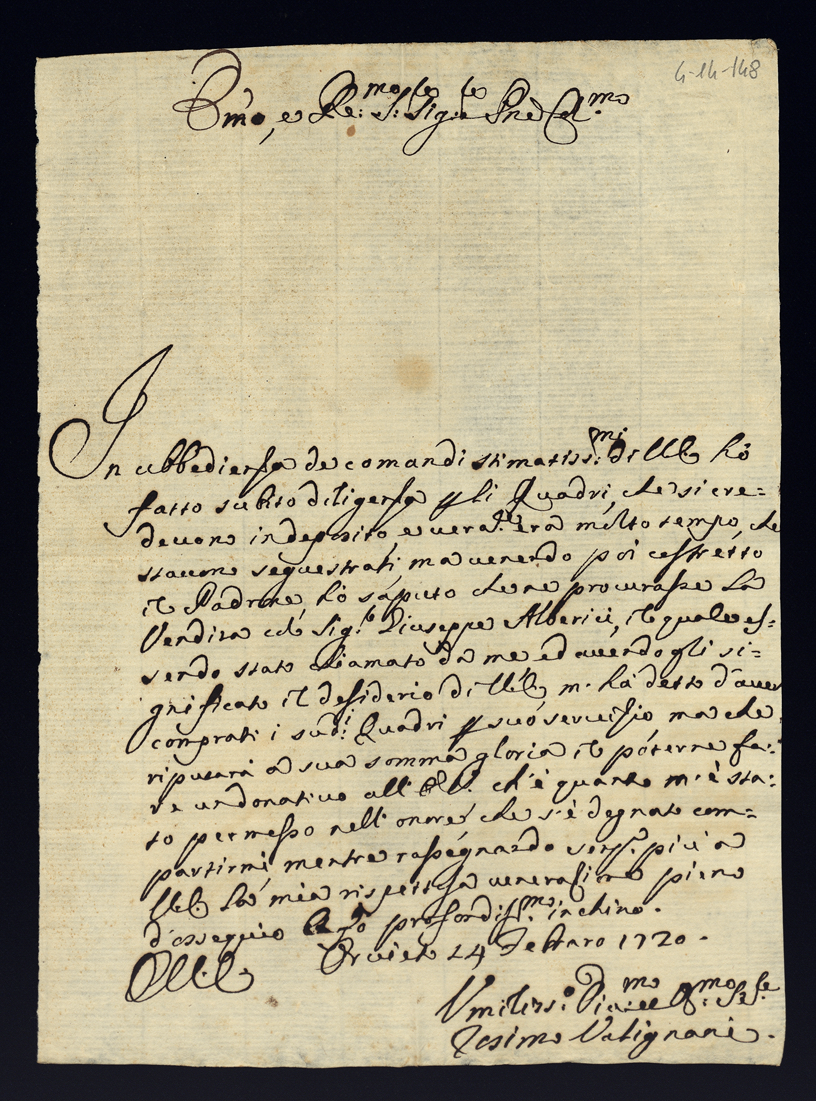 4-14-148
Em̃o, e Re:mo S:re Sig:re Pñe Col.mo
In ubbedienza de comandi stimatiss:mi di V.E. hò
fatto subito diligenza p li Quadri, che si cre=
devono in deposito, e vera.te era molto tempo, che
stavono sequestrati, ma venendo poi costretto
il Padrone, hò saputo che ne procurasse la
Vendita al Sig.r Giuseppe Alberici, il quale es=
sendo stato chiamato da me ed avendogli si=
gnificato il desiderio di V.E. m'hà detto d'aver
comprati i sud.i Quadri p suo servizio ma che
riputarà a sua somma gloria il poterne fa=
re un donativo all'E.V. ch'è quanto m'è sta=
to permesso nell'onore che s'è degnato com=
partirmi, mentre rassegnando semp.e più a
V.E. la mia rispettosa venerazione pieno
d'ossequio profondiss.mo inchino.
Orvieto 24 Febraro 1720.
V.E.
Umiliss.o
Valignani.